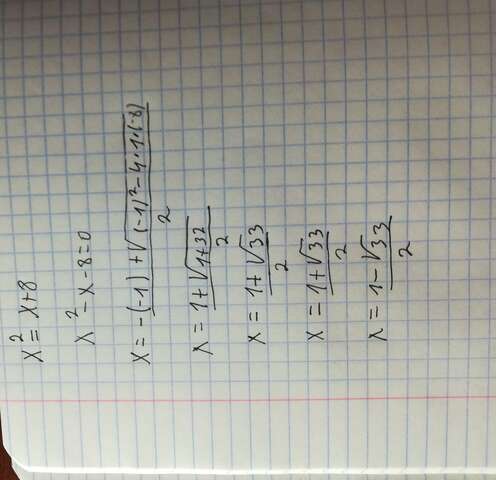 x² = x+8
x² - x - 8 = 0
x = -(-1) + √(-1)² - 4·1·(-8) / 2
x = 1 + √1+32 / 2
x = 1 + √33 / 2
x = 1 + √33 / 2
x = 1 - √33 / 2